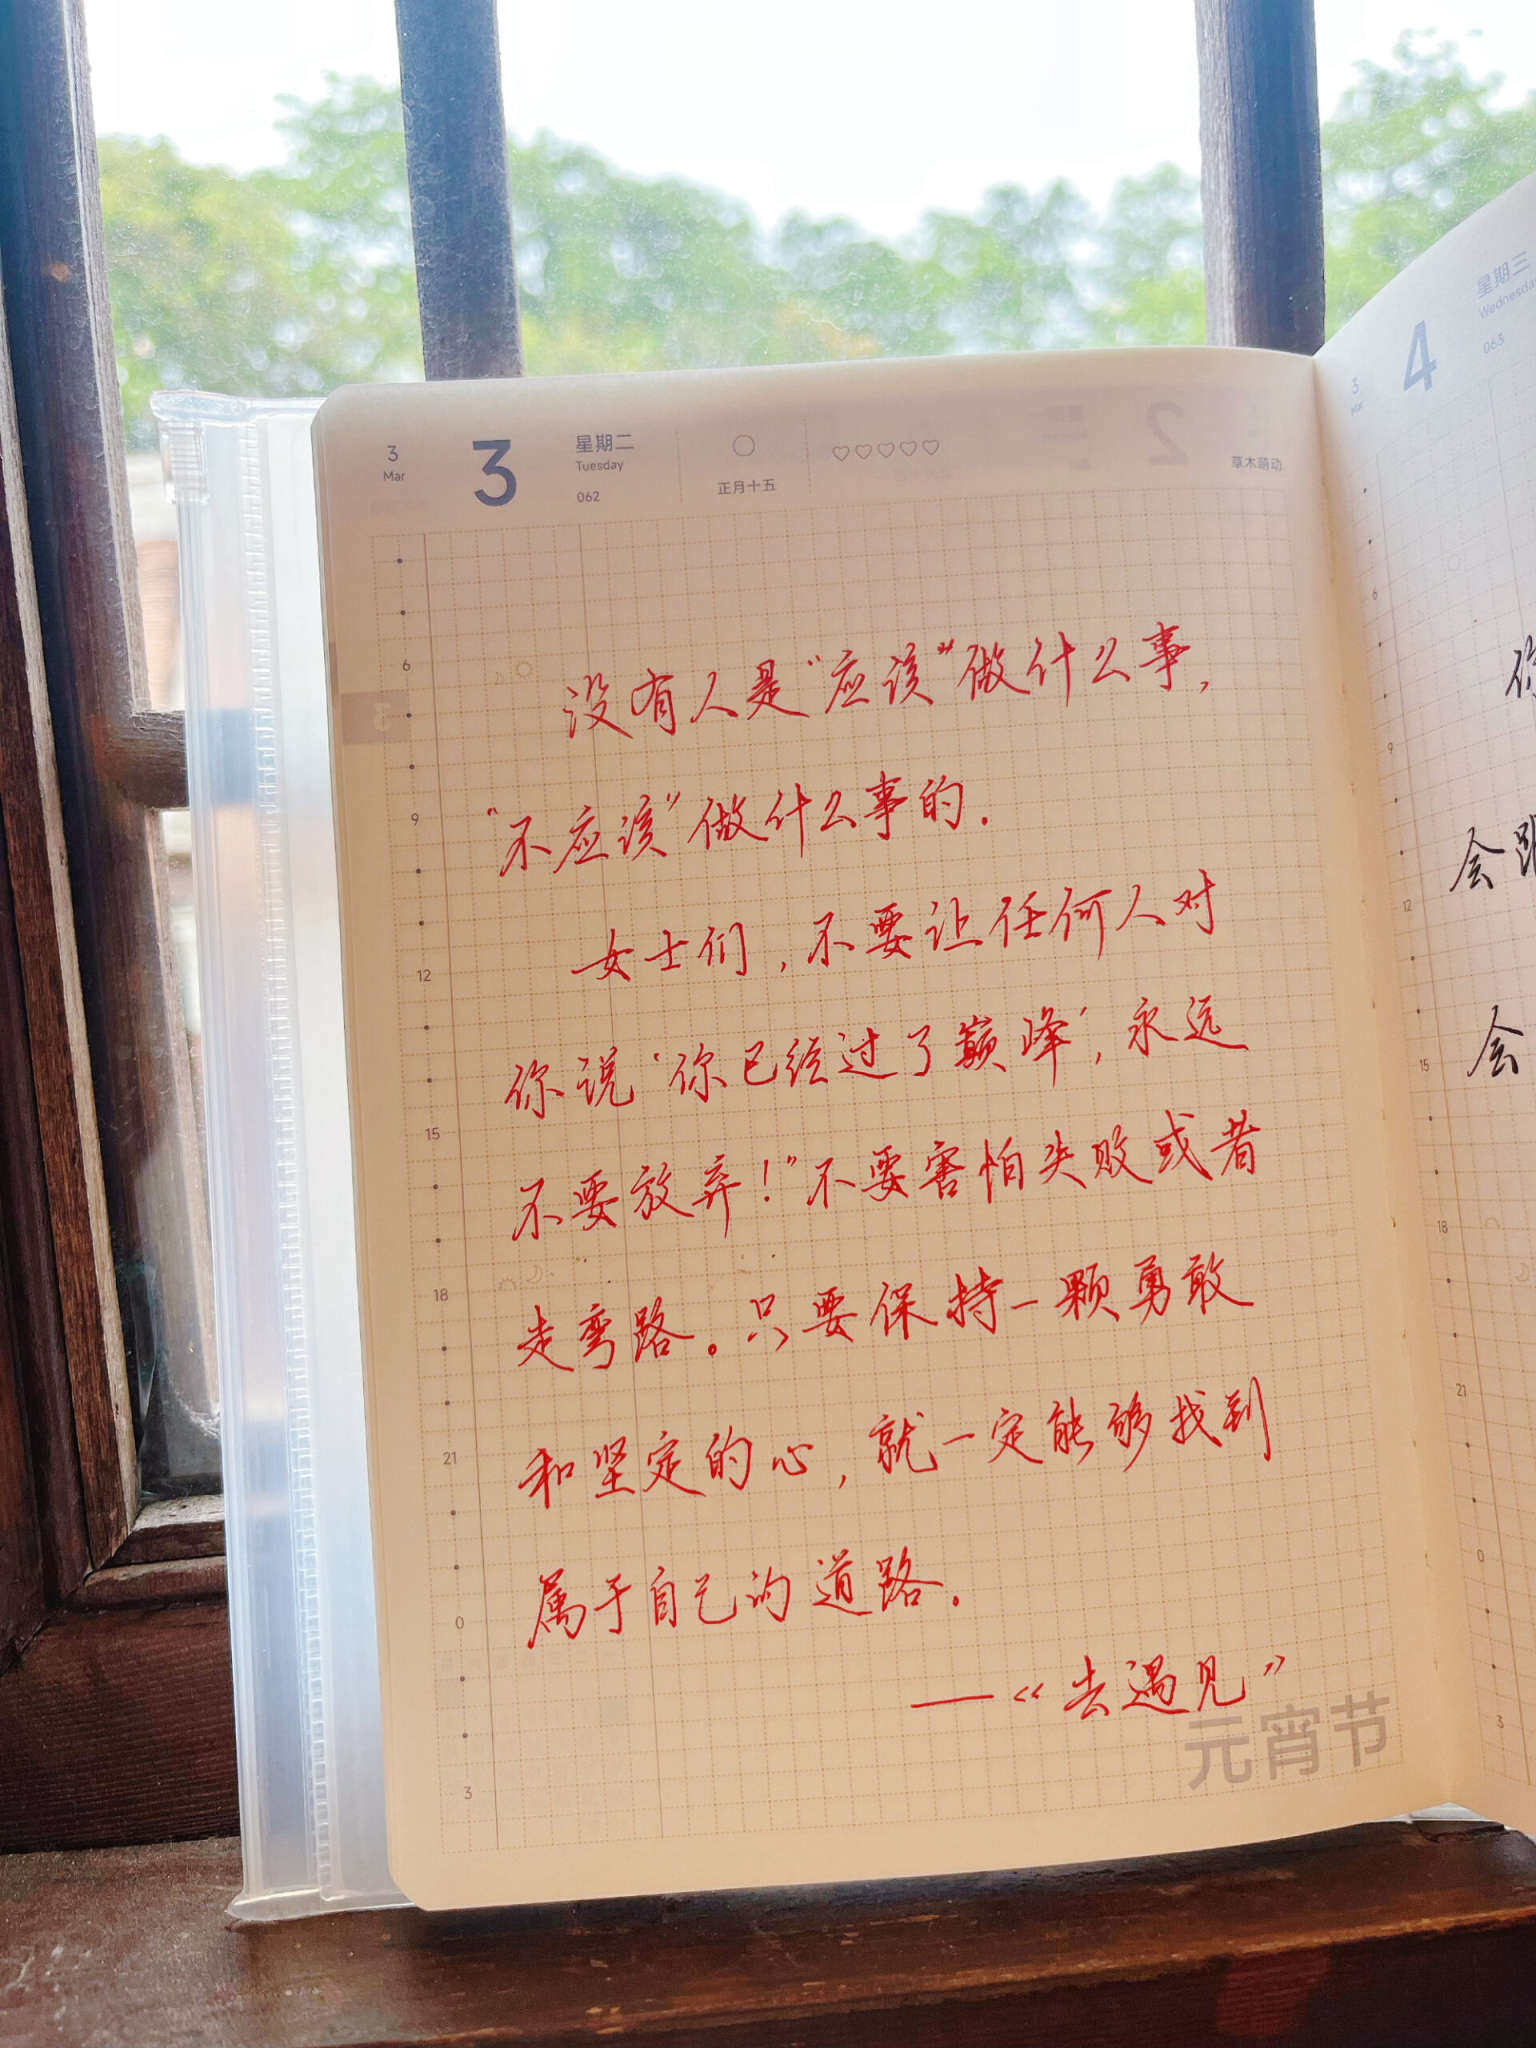 3
Mar
3
星期二
Tuesday
062
正月十五
草木萌动
没有人是“应该”做什么事,
“不应该”做什么事的.
女士们,不要让任何人对
你说‘你已经过了巅峰’,永远
不要放弃!”不要害怕失败或者
走弯路。只要保持一颗勇敢
和坚定的心,就一定能够找到
属于自己的道路。
——《去遇见》
元宵节
6
9
12
15
18
21
0
3
3
Mar
4
星期三
Wednesday
063
你
会跟
会
6
9
12
15
18
21
0
3